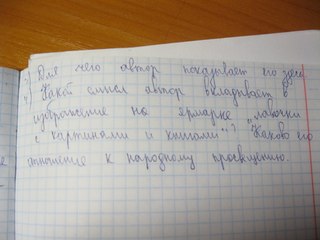 3) Для чего автор показывает его здесь
4) Какой смысл автор вкладывает в
изображение на ярмарке "лавочки
с картинами и книгами"? Каково его
отношение к народному просвещению.